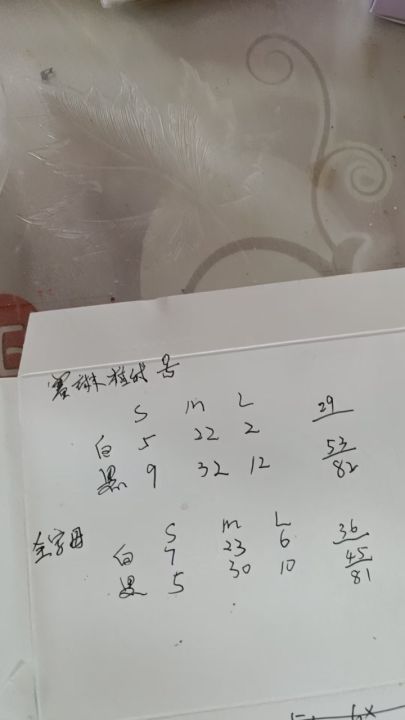 S M L 29
白 5 22 2
黑 9 32 12 53
82
全字母 S M L 36
白 7 23 6 45
黑 5 30 10 81